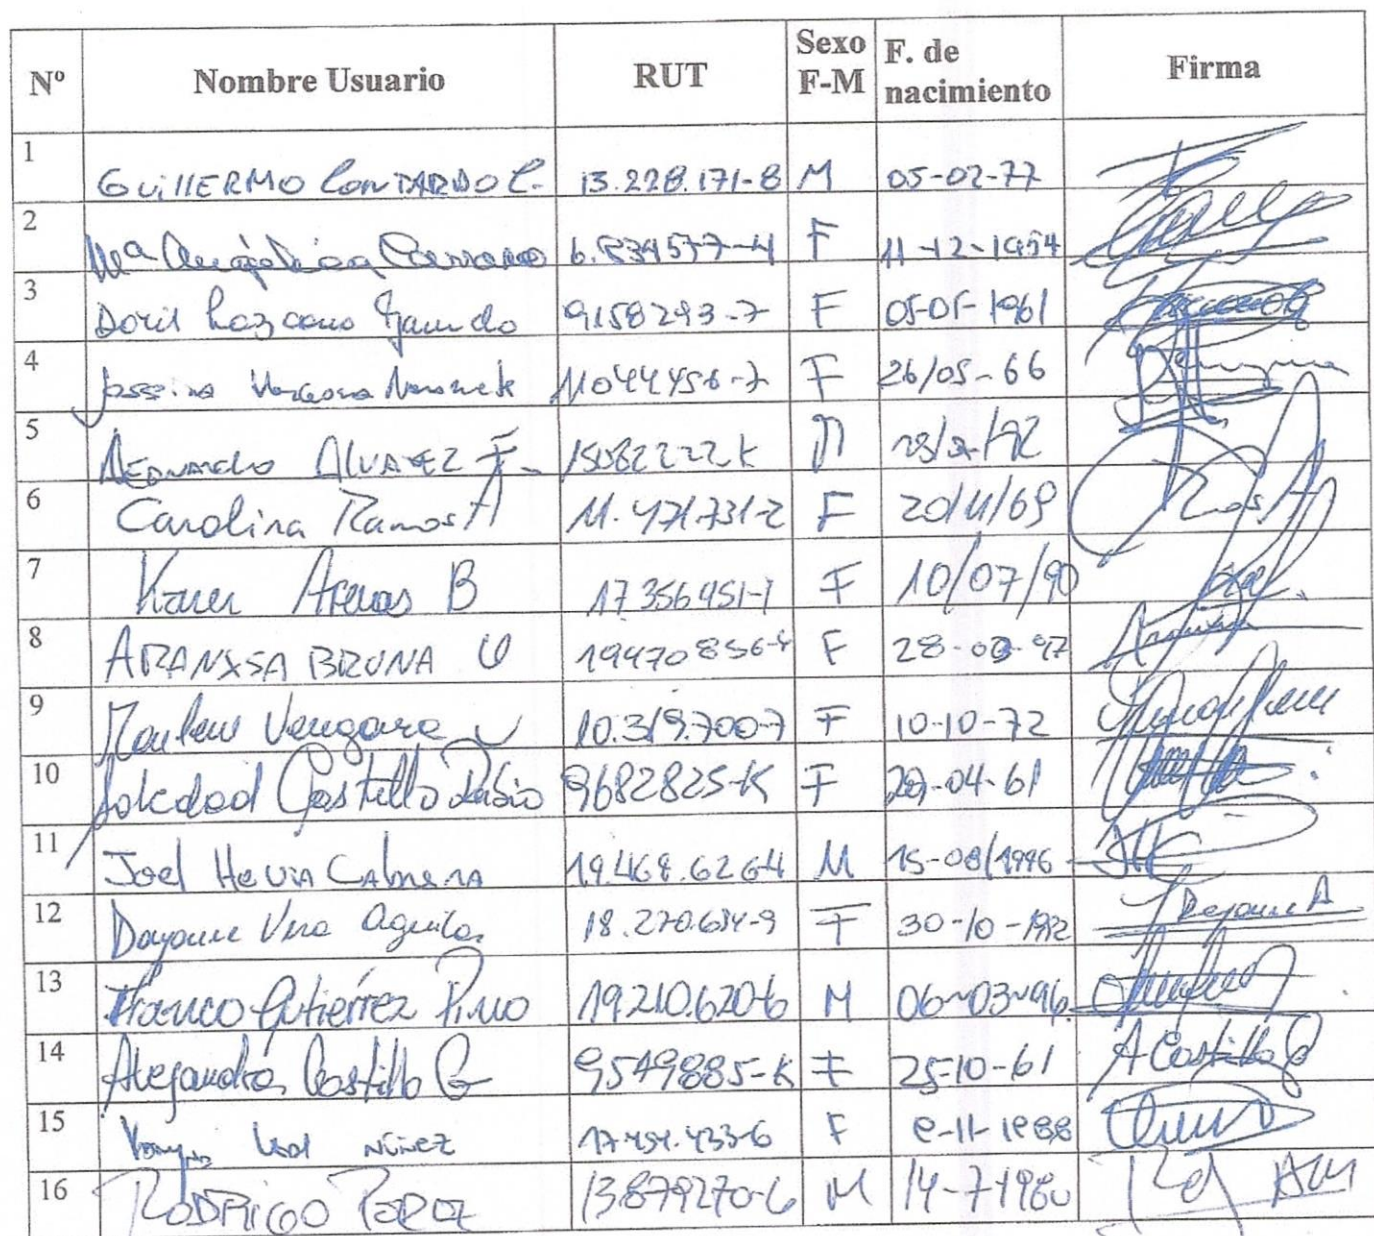 Nº Nombre Usuario RUT Sexo F-M F. de nacimiento Firma
1 GUILLERMO CONTARDO C. 13.228.171-8 M 05-02-77
2 Mª Angélica Carrasco F 11-12-1954
3 Doris Lazcano 9158293-7 F 05-05-1961
4 Vergara 11044456-7 F 26/05-66
5 ALVAREZ F. 15082222-K M
6 Carolina Ramos A 11.471.731-2 F 20/11/69 Ramos A
7 Karen Arenas B 17356951-1 F 10/07/90
8 ARANXSA BRUNA U F 28-03-97
9 Marlene Vergara V 10.319.700-7 F 10-10-72
10 Soledad Castillo Rubio 9682825-K F 29-04-61
11 Joel HEVIA CABRERA 19.468.626-4 M 15-08/1996
12 Dayanne Vera Aguilar 18.270.634-9 F 30-10-1992 Dayanne A
13 Franco Gutiérrez Pino 19.210.620-6 M 06-03-96
14 Alejandra Castillo G 9549885-K F 25-10-61 A Castillo G
15 NÚÑEZ F
16 RODRIGO PEREZ 13879270-6 M 14-7-1980